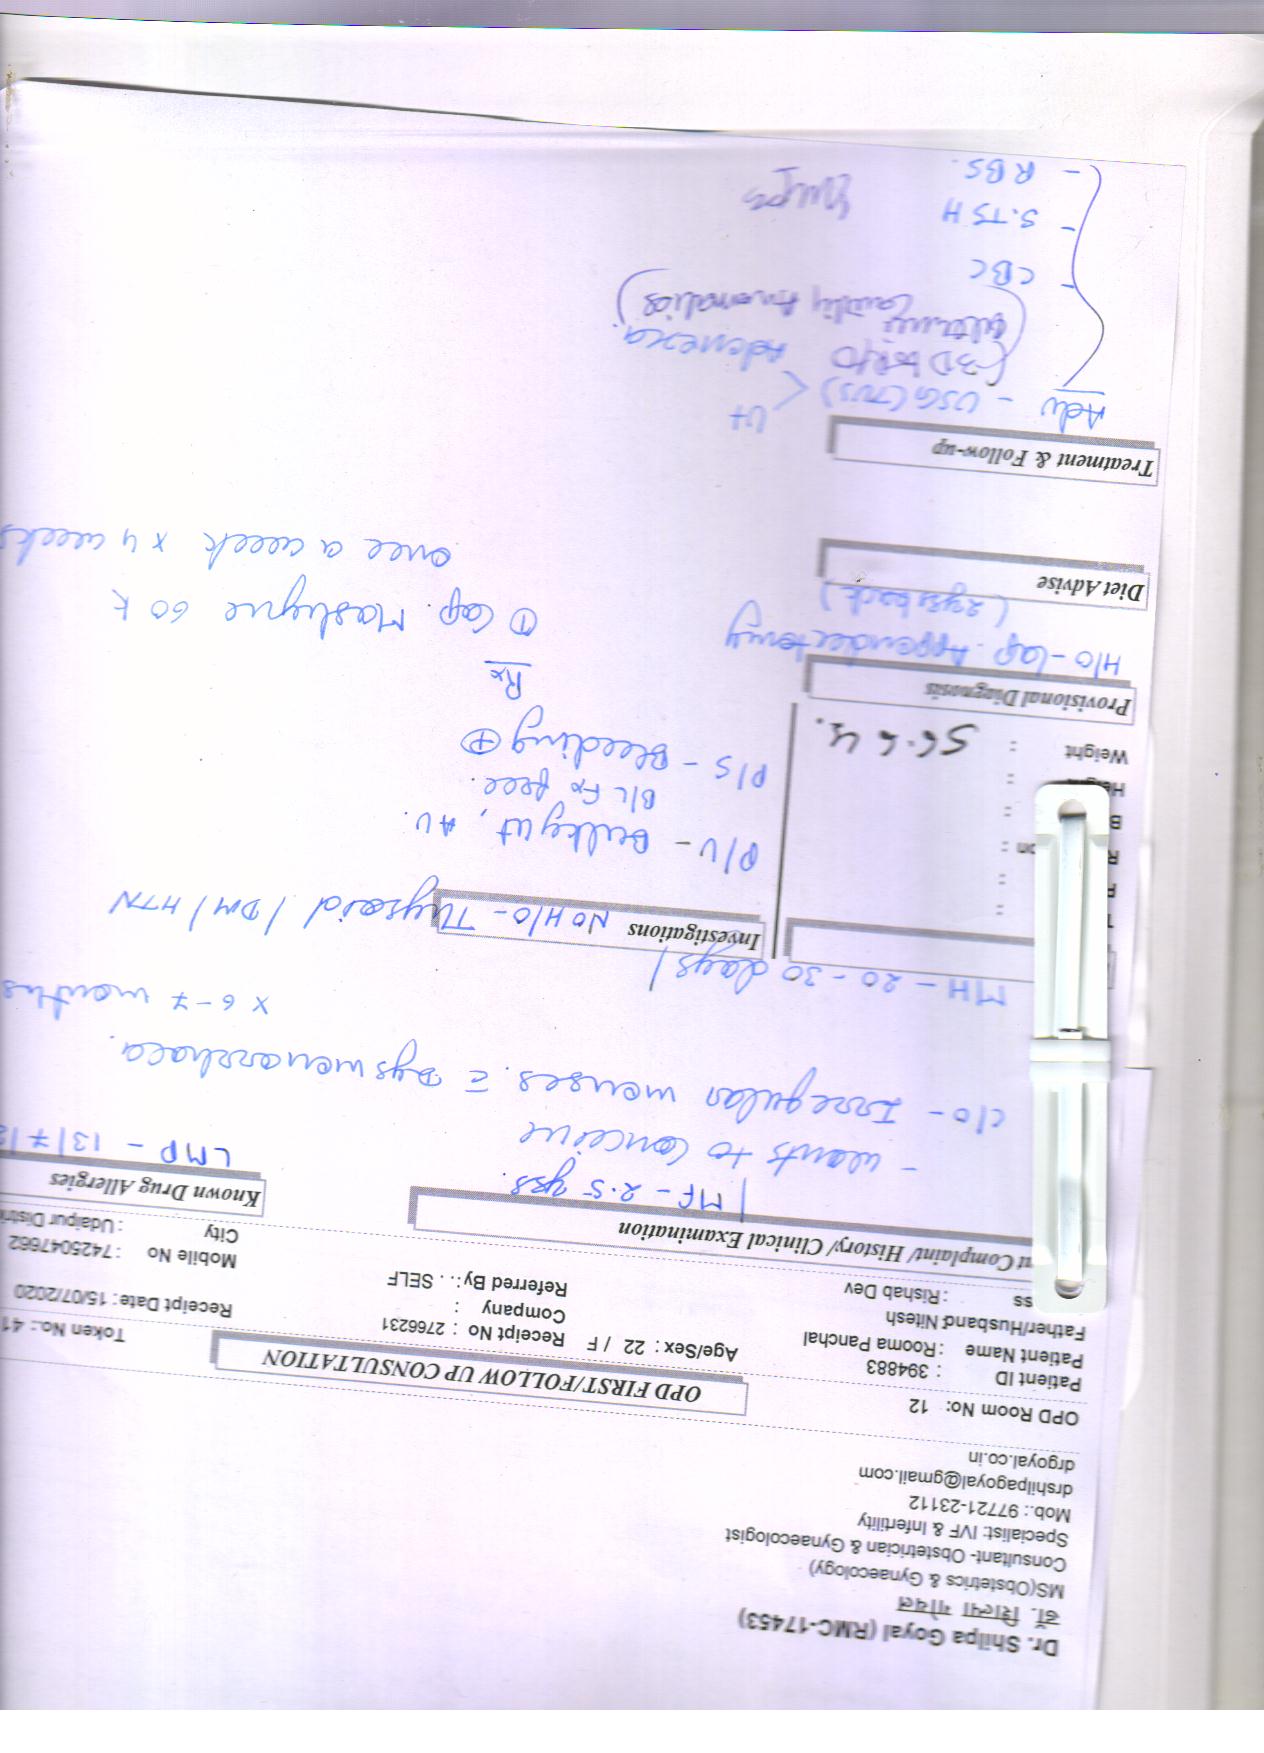 Dr. Shilpa Goyal (RMC-17453)
डॉ. शिल्पा गोयल
MS(Obstetrics & Gynaecology)
Consultant- Obstetrician & Gynaecologist
Specialist: IVF & Infertility
Mob.: 97721-23112
drshilpagoyal@gmail.com
drgoyal.co.in
OPD Room No: 12
OPD FIRST/FOLLOW UP CONSULTATION
Token No.: 41
Patient ID : 394883
Patient Name : Rooma Panchal
Age/Sex : 22 / F
Receipt No : 2766231
Receipt Date : 15/07/2020
Father/Husband: Nitesh
Company :
ss : Rishab Dev
Referred By : . . SELF
Mobile No : 7425047662
City : Udaipur Distri
nt Complaint/ History/ Clinical Examination
Known Drug Allergies
MF - 2.5 yrs.
LMP - 13/7/2
- wants to conceive
c/o - Irregular menses. c Dysmenorrhoea.
x 6-7 months
MH - 20-30 days/
Investigations
NO H/O - Thyroid / DM / HTN
P/V - Bulky ut, AV.
B/L Fx free.
P/S - Bleeding +
Weight : 56.64.
Rx
Provisional Diagnosis
H/O - lap. Appendectomy
(2 yrs back)
① Cap. Maslique 60 K
once a week x 4 weeks
Diet Advise
Treatment & Follow-up
Adv - USG (TVS) < Ut
Adenexa.
(3D to R/O
uterine Cavity Anomalies)
- CBC
- S.TSH
- RBS.